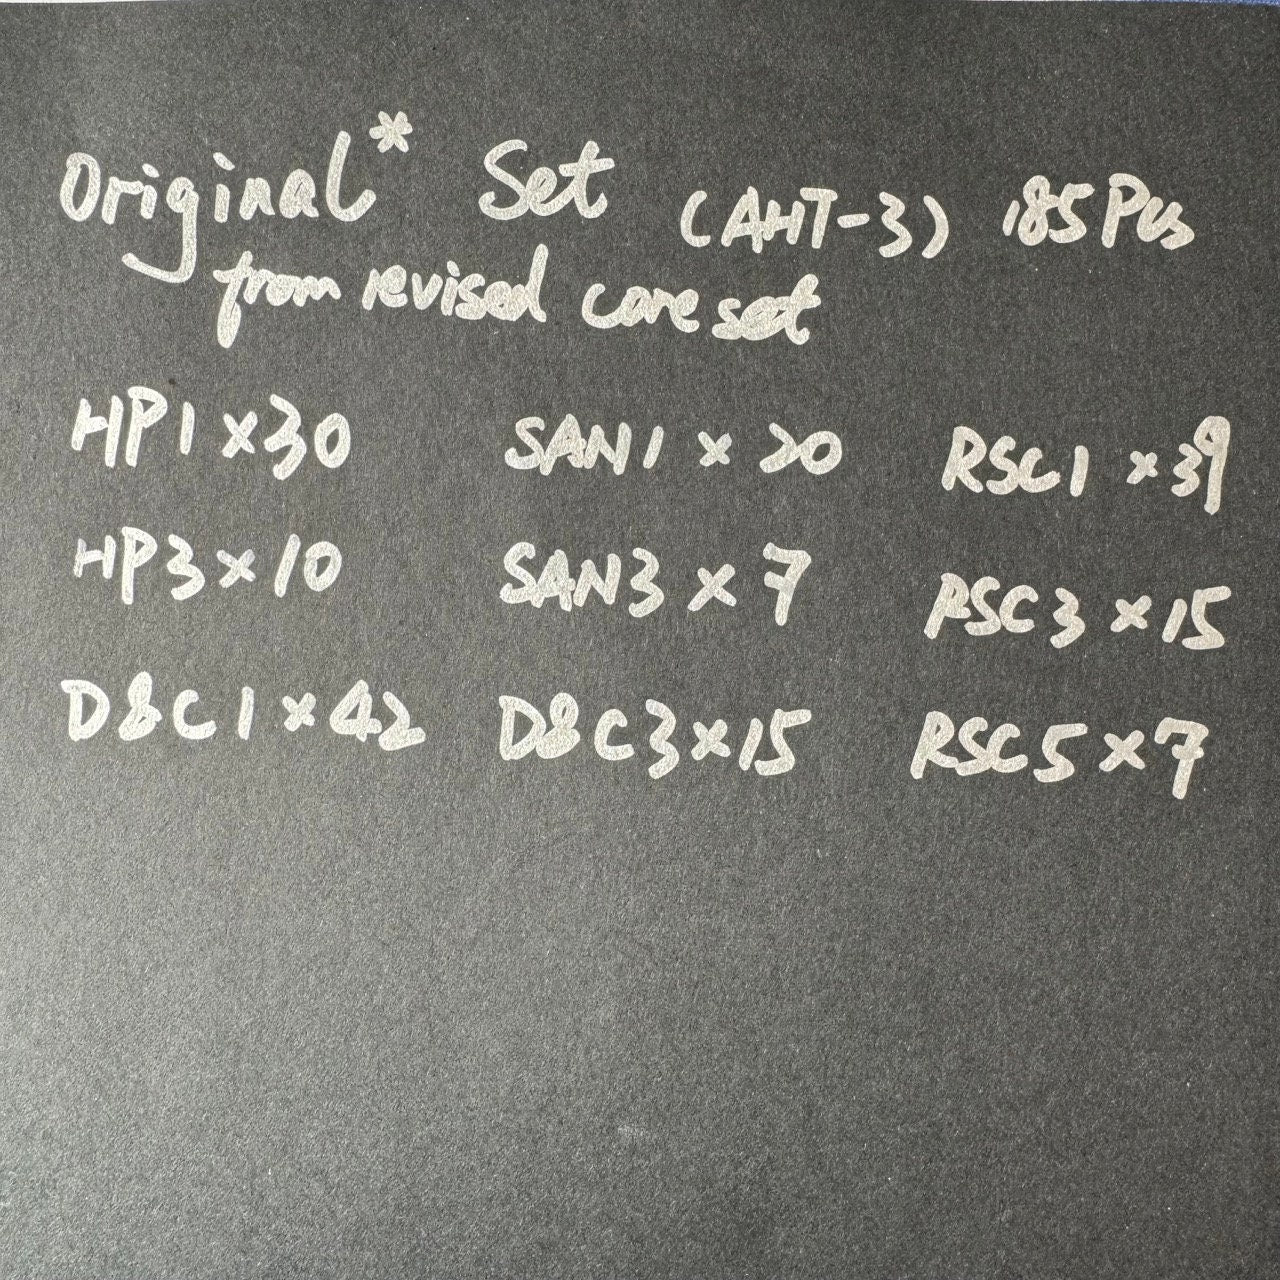 Original* Set (AHT-3) 185 Pcs
from revised core set
HP1 x30 SAN1 x 20 RSC1 x39
HP3x10 SAN3 x 7 RSC3 x15
D&C1x42 D&C3x15 RSC5x7